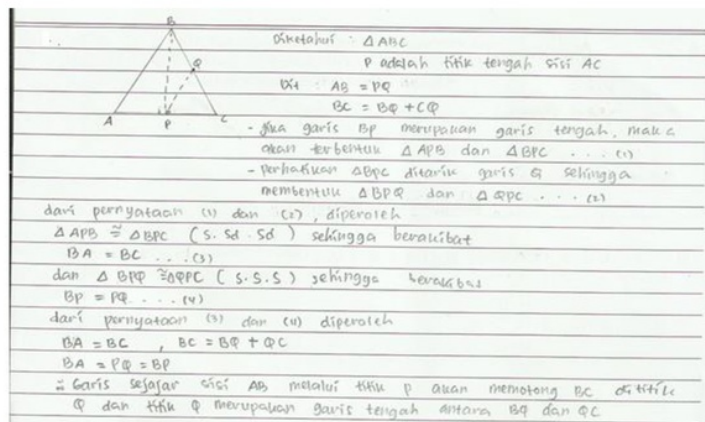 B
Diketahui : Δ ABC
P adalah titik tengah sisi AC
Q
Dit : AB = PQ
BC = BQ + CQ
A P C
- Jika garis BP merupakan garis tengah, maka
akan terbentuk Δ APB dan Δ BPC . . . (1)
- Perhatikan ΔBPC ditarik garis Q sehingga
membentuk Δ BPQ dan Δ QPC . . . (2)
dari pernyataan (1) dan (2), diperoleh
Δ APB ≅ Δ BPC (S. Sd. Sd) sehingga berakibat
BA = BC . . . (3)
dan Δ BPQ ≅ ΔQPC (S.S.S) sehingga berakibat
BP = PQ . . . . (4)
dari pernyataan (3) dan (4) diperoleh
BA = BC , BC = BQ + QC
BA = PQ = BP
∴ Garis sejajar sisi AB melalui titik P akan memotong BC di titik
Q dan titik Q merupakan garis tengah antara BQ dan QC